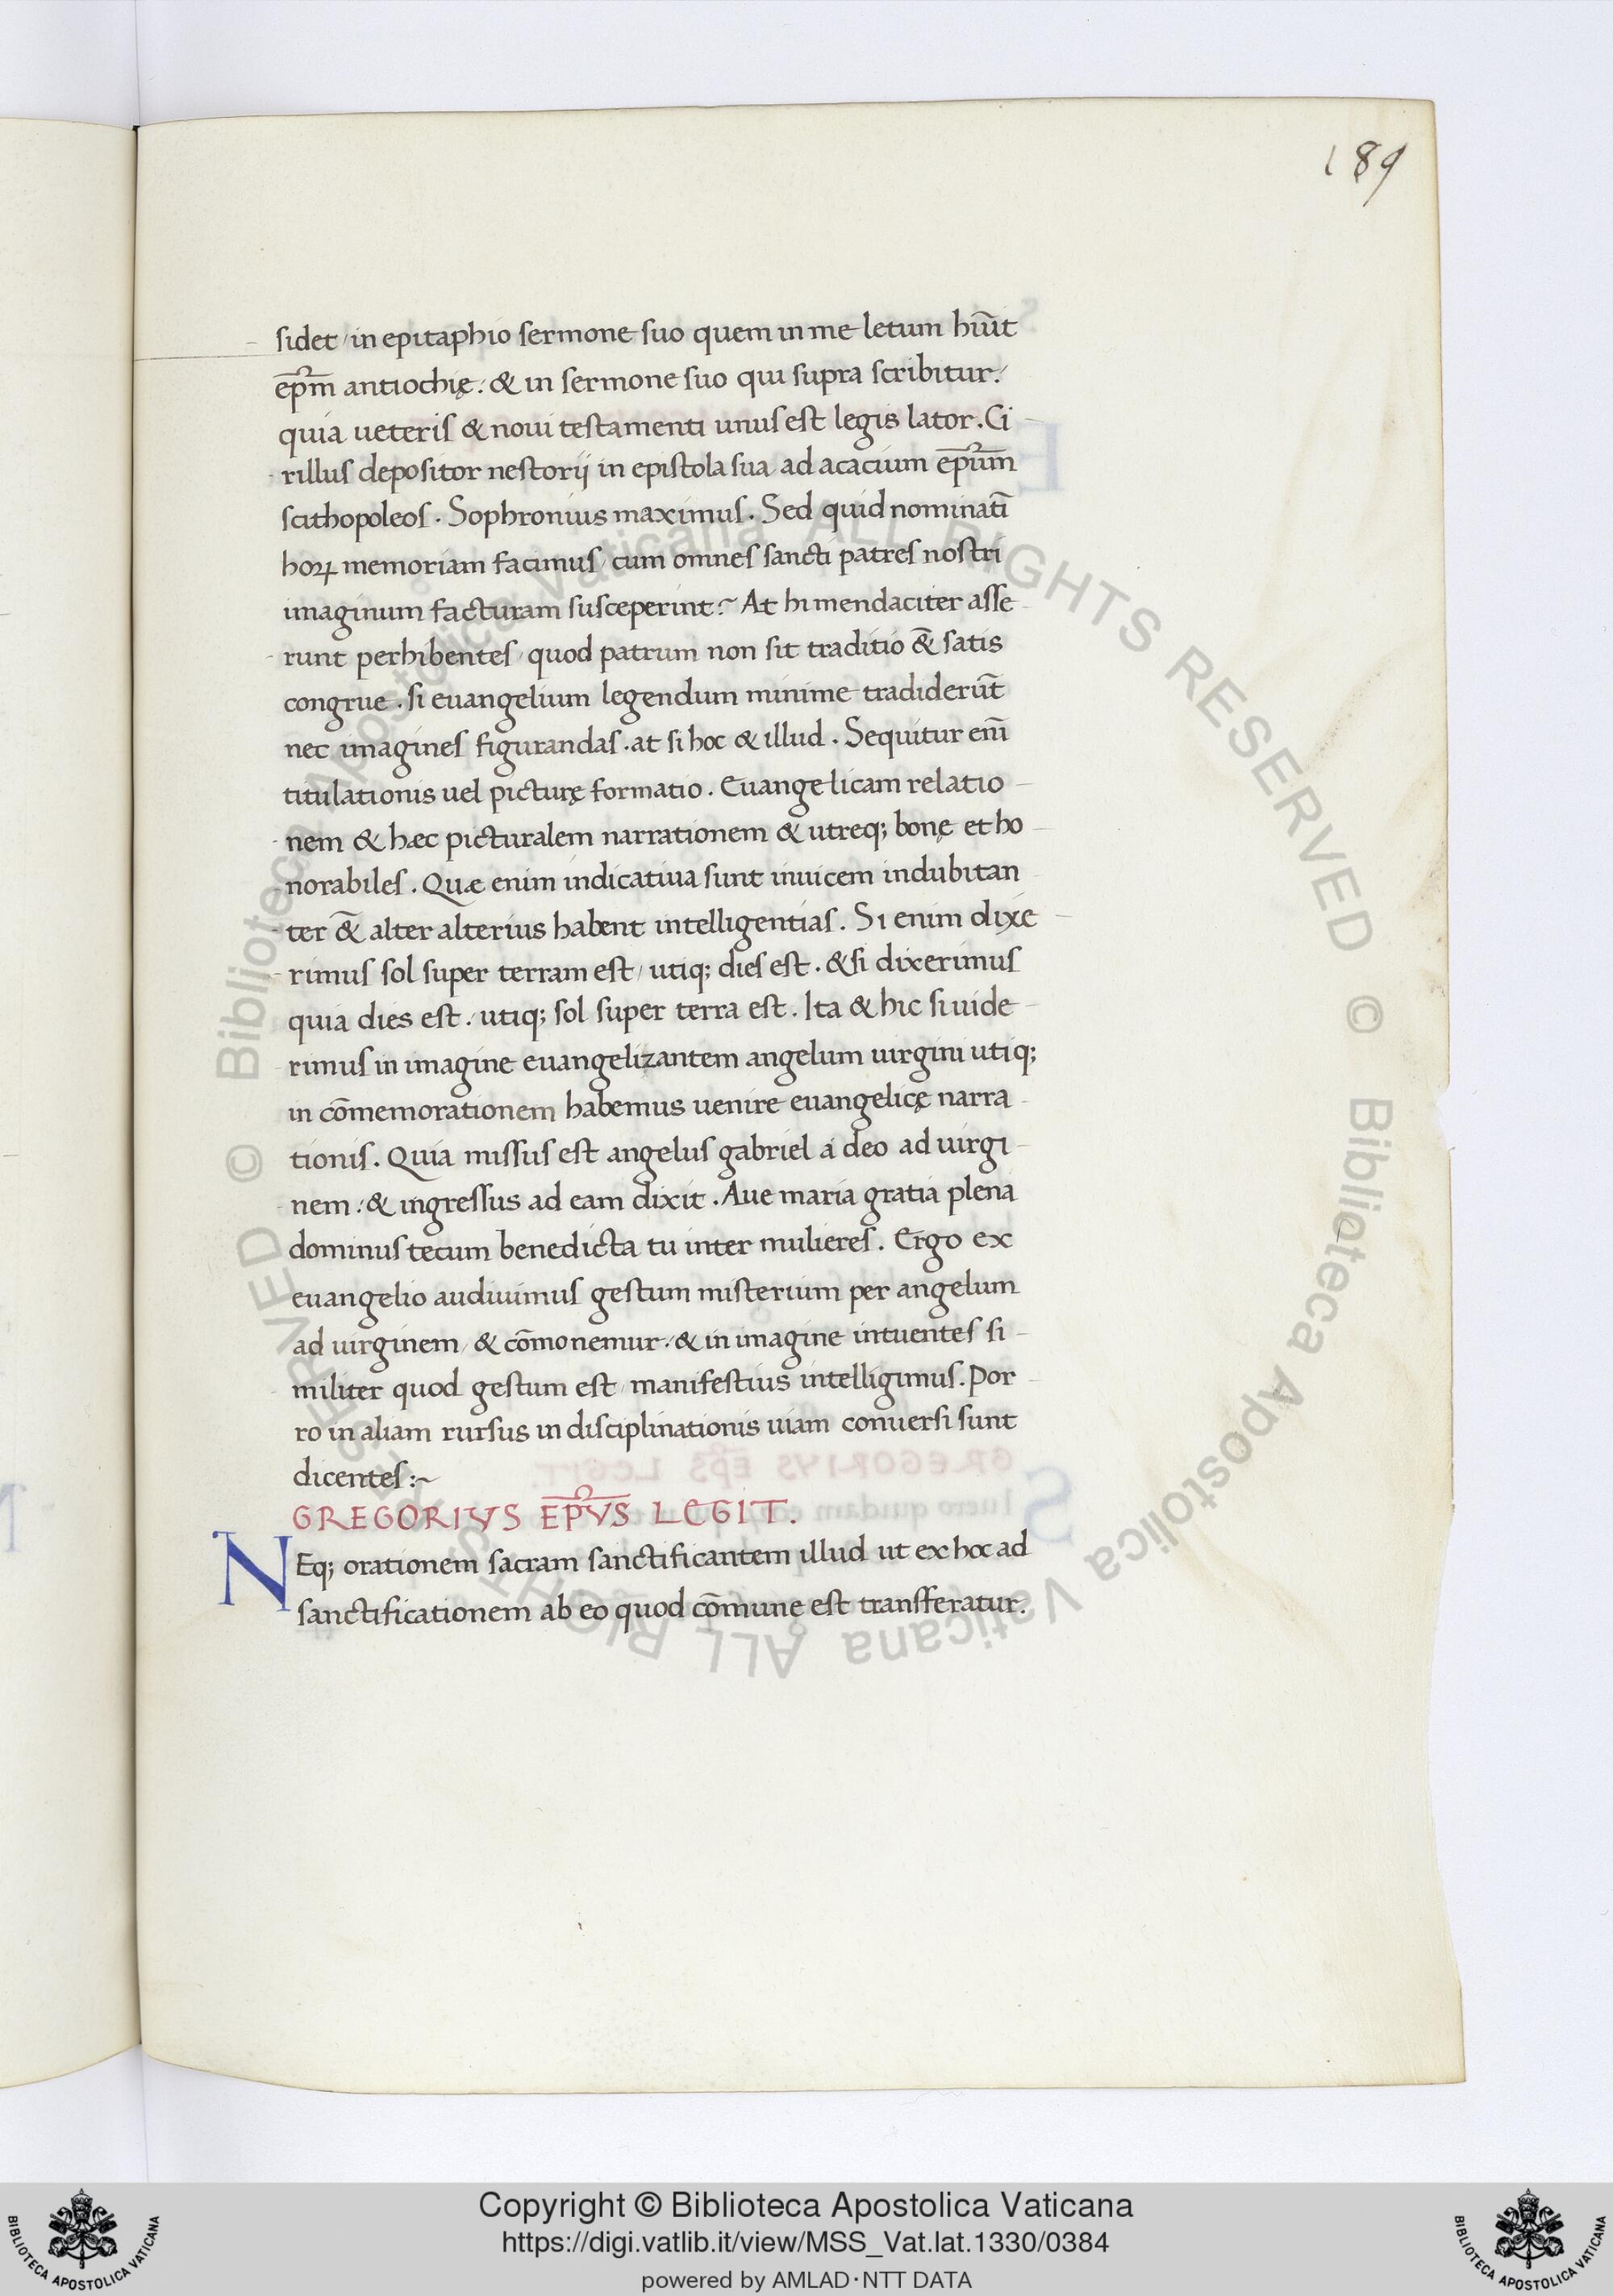 189
sidet / in epitaphio sermone suo quem in me letum hiũt
ep̃m antiochię ./ & in sermone suo qui supra scribitur ./
quia ueteris & noui testamenti unus est legis lator . Ci
rillus depositor nestorij in epistola sua ad acacium ep̃ium
scithopoleos . Sophronius maximus . Sed quid nominati̅
hoꝝ memoriam facimus / cum omnes sancti patres nostri
imaginum facturam susceperint :~ At hi mendaciter asse
runt perhibentes / quod patrum non sit traditio &̃ satis
congrue . si euangelium legendum minime tradiderũt
nec imagines figurandas . at si hoc & illud . Sequitur eni̅
titulationis uel picturę formatio . Euangelicam relatio
nem & hæc picturalem narrationem & utreq; bonę et ho
norabiles . Quæ enim indicatiua sunt inuicem indubitan
ter &̃ alter alterius habent intelligentias . Si enim dixe
rimus sol super terram est / utiq; dies est . & si dixerimus
quia dies est ./ utiq; sol super terra est . Ita & hic si uide
rimus in imagine euangelizantem angelum uirgini utiq;
in cõmemorationem habemus uenire euangelicę narra
tionis . Quia missus est angelus gabriel a deo ad uirgi
nem ./ & ingressus ad eam dixit . Aue maria gratia plena
dominus tecum benedicta tu inter mulieres . Ergo ex
euangelio audiuimus gestum misterium per angelum
ad uirginem / & cõmonemur ./ & in imagine intuentes si
militer quod gestum est / manifestius intelligimus . Por
ro in aliam rursus in disciplinationis uiam conuersi sunt
dicentes :~
GREGORIVS EP̃VS LEGIT .
NEq; orationem sacram sanctificantem illud ut ex hoc ad
sanctificationem ab eo quod cõmune est transferatur .
© Biblioteca Apostolica Vaticana ALL RIGHTS RESERVED © Biblioteca Apostolica Vaticana ALL RIGHTS RESERVED
Copyright © Biblioteca Apostolica Vaticana
https://digi.vatlib.it/view/MSS_Vat.lat.1330/0384
powered by AMLAD·NTT DATA
BIBLIOTECA APOSTOLICA VATICANA
BIBLIOTECA APOSTOLICA VATICANA